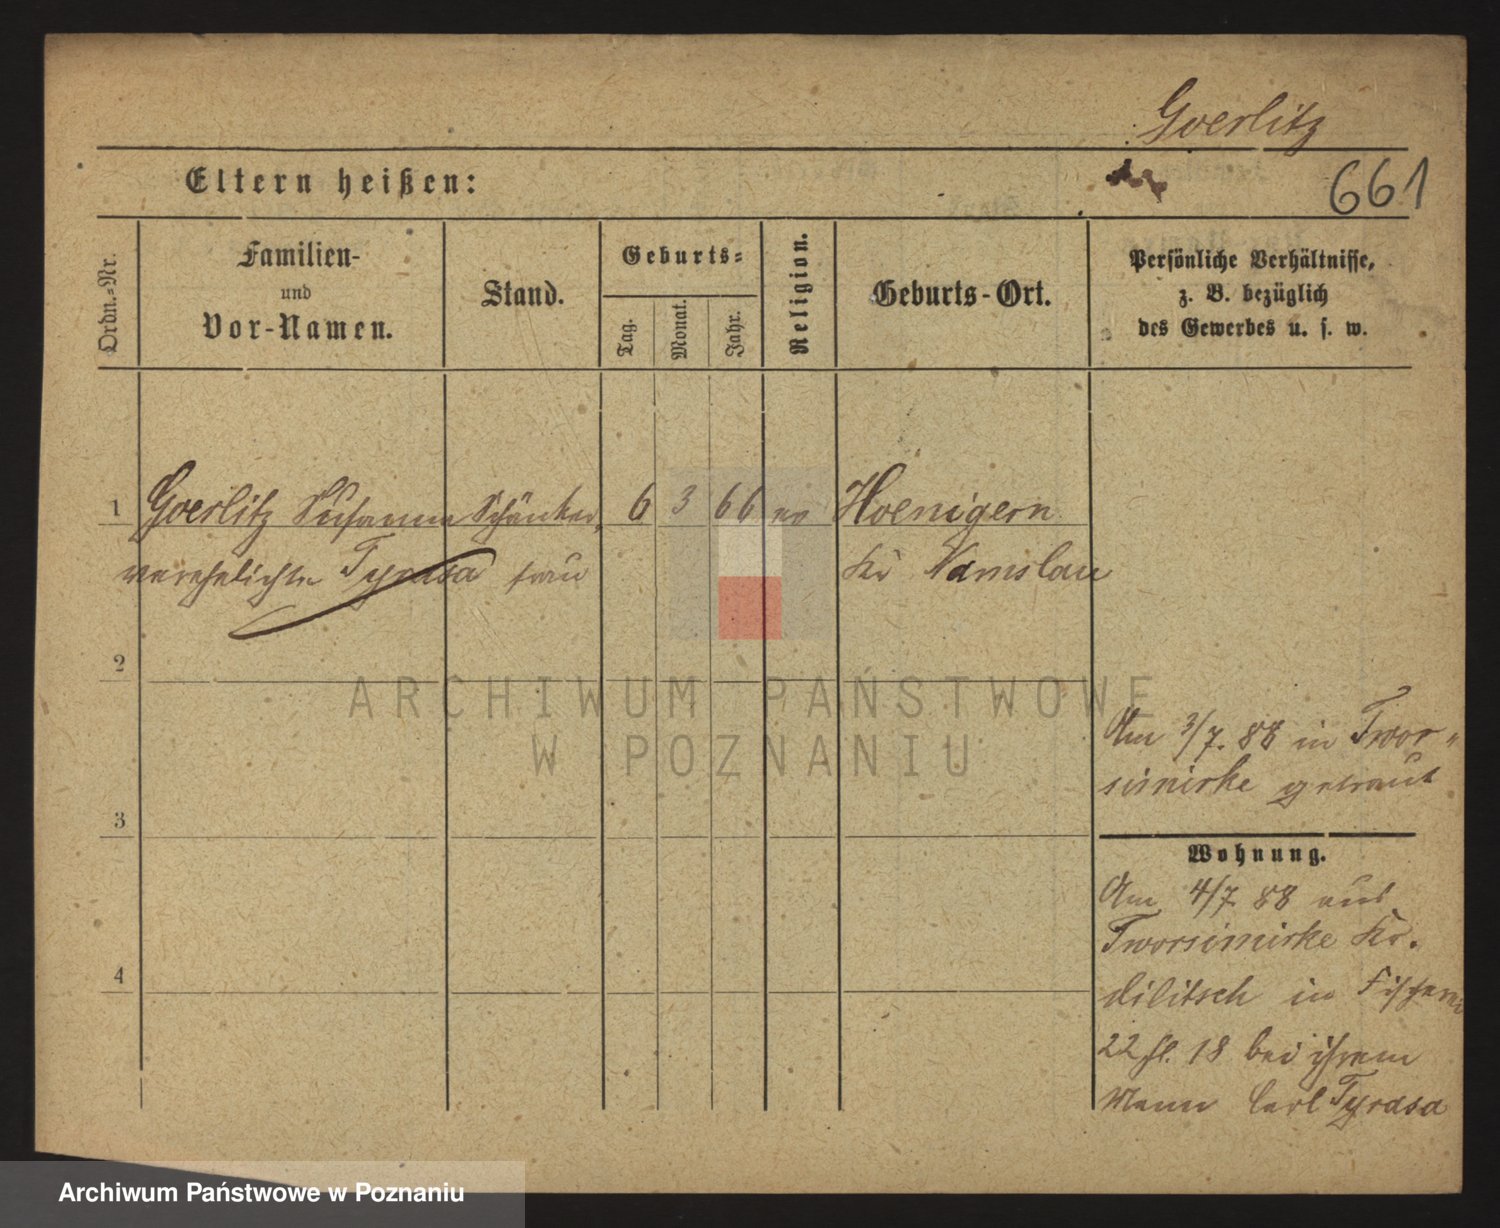 Goerlitz
661
Eltern heißen:
Ordn.-Nr.
Familien-
und
Vor-Namen.
Stand.
Geburts-
Tag.
Monat.
Jahr.
Religion.
Geburts-Ort.
Persönliche Verhältnisse,
z. B. bezüglich
des Gewerbes u. s. w.
1 Goerlitz Susanna Schänker, 6 3 66 ev Hoenigern
verehelichte Tyrasa frau Kr Namslau
2
ARCHIWUM PAŃSTWOWE
W POZNANIU
Am 3/7. 88 in Twor-
simirke getraut
3
Wohnung.
Am 4/7 88 aus
Tworsimirke Kr.
Militsch in Fischerei
4
22 bei ihrem
Mann Carl Tyrasa
Archiwum Państwowe w Poznaniu